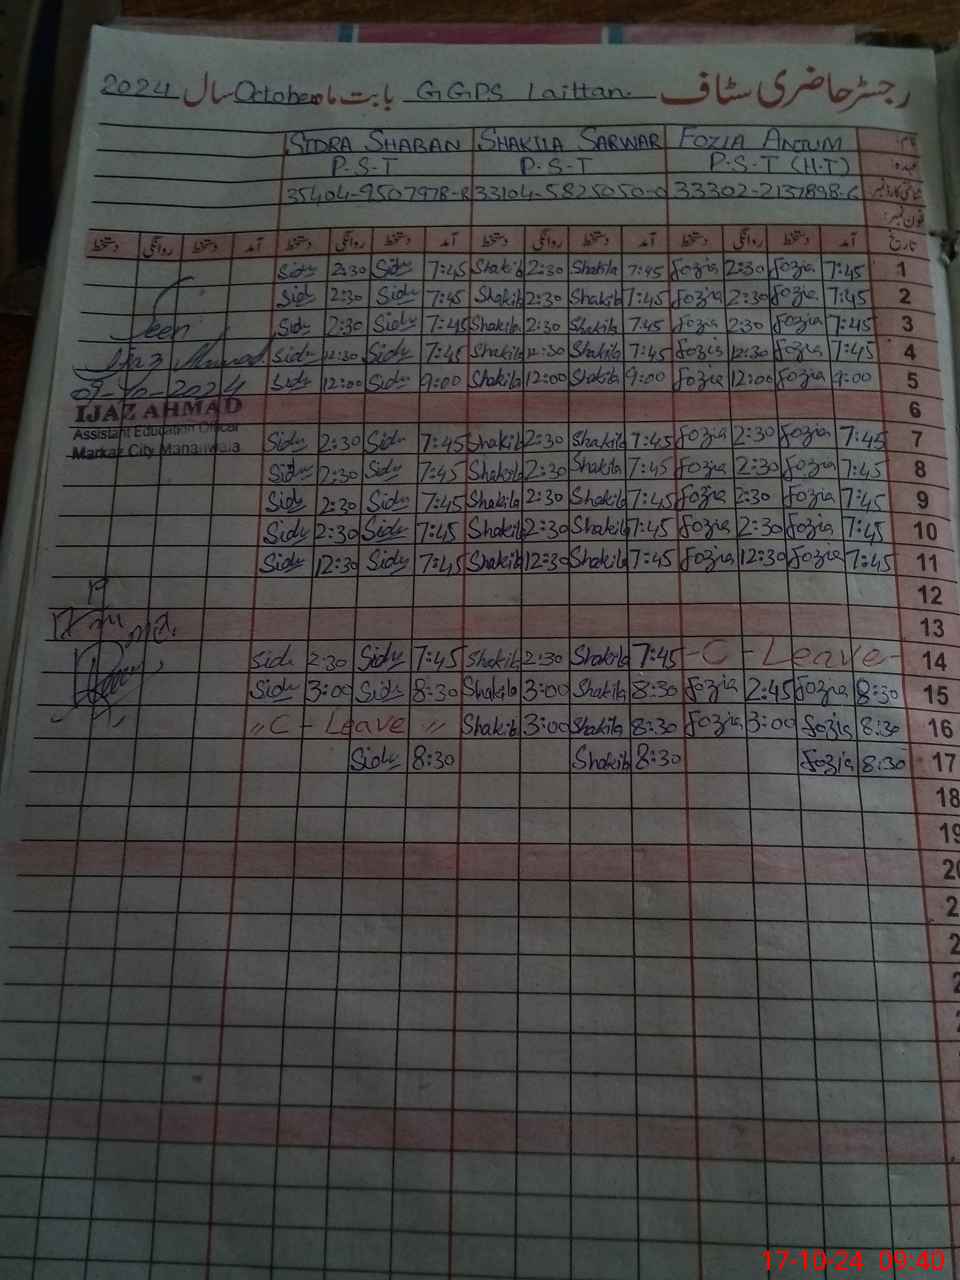 رجسٹر حاضری سٹاف GGPS Laittan. بابت ماہ October سال 2024
نام SIDRA SHABAN SHAKILA SARWAR FOZIA ANJUM
عہدہ P.S.T P.S.T P.S.T (H.T)
شناختی کارڈ نمبر 35404-9507978-8 33104-5825050-0 33302-2137898-6
فون نمبر:
تاریخ آمد دستخط روانگی دستخط آمد دستخط روانگی دستخط آمد دستخط روانگی دستخط آمد دستخط روانگی دستخط
Sidu 2:30 Sidu 7:45 Shakila 2:30 Shakila 7:45 Fozia 2:30 Fozia 7:45 1
Sidu 2:30 Sidu 7:45 Shakila 2:30 Shakila 7:45 Fozia 2:30 Fozia 7:45 2
Seen Sidu 2:30 Sidu 7:45 Shakila 2:30 Shakila 7:45 Fozia 2:30 Fozia 7:45 3
Sidu 12:30 Sidu 7:45 Shakila 12:30 Shakila 7:45 Fozia 12:30 Fozia 7:45 4
09-10-2024 Sidu 12:00 Sidu 9:00 Shakila 12:00 Shakila 9:00 Fozia 12:00 Fozia 9:00 5
IJAZ AHMAD 6
Assistant Education Officer
Markaz City Mananwala
Sidu 2:30 Sidu 7:45 Shakila 2:30 Shakila 7:45 Fozia 2:30 Fozia 7:45 7
Sidu 2:30 Sidu 7:45 Shakila 2:30 Shakila 7:45 Fozia 2:30 Fozia 7:45 8
Sidu 2:30 Sidu 7:45 Shakila 2:30 Shakila 7:45 Fozia 2:30 Fozia 7:45 9
Sidu 2:30 Sidu 7:45 Shakila 2:30 Shakila 7:45 Fozia 2:30 Fozia 7:45 10
Sidu 12:30 Sidu 7:45 Shakila 12:30 Shakila 7:45 Fozia 12:30 Fozia 7:45 11
12
13
Sidu 2:30 Sidu 7:45 Shakila 2:30 Shakila 7:45 -C-Leave- 14
Sidu 3:00 Sidu 8:30 Shakila 3:00 Shakila 8:30 Fozia 2:45 Fozia 8:30 15
"C-Leave" Shakila 3:00 Shakila 8:30 Fozia 3:00 Fozia 8:30 16
Sidu 8:30 Shakila 8:30 Fozia 8:30 17
18
19
17-10-24 09:40